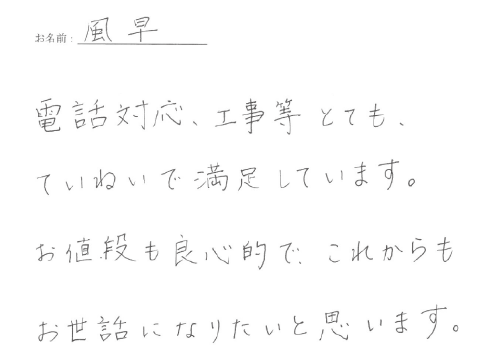 お名前: 風早
電話対応、工事等とても、
ていねいで満足しています。
お値段も良心的で、これからも
お世話になりたいと思います。